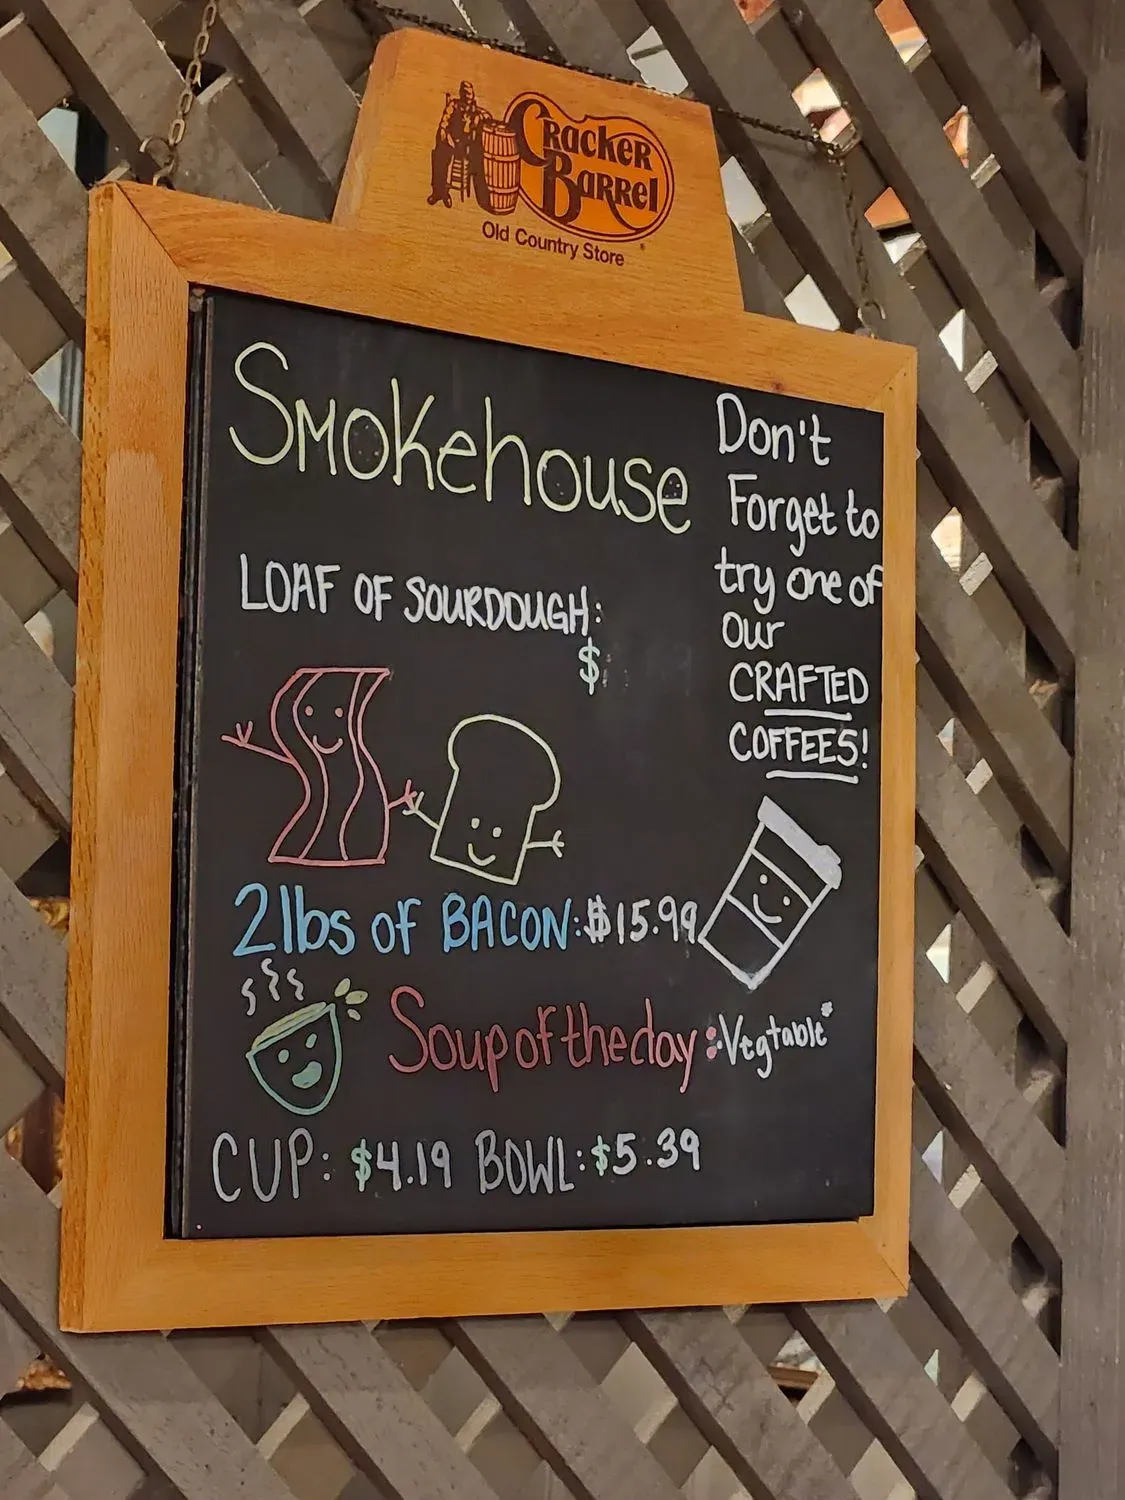 Cracker
Barrel
Old Country Store
Smokehouse
LOAF OF SOURDOUGH:
$
2lbs of BACON: $15.99
Soup of the day: Vegtable
CUP: $4.19 BOWL: $5.39
Don't
Forget to
try one of
our
CRAFTED
COFFEES!